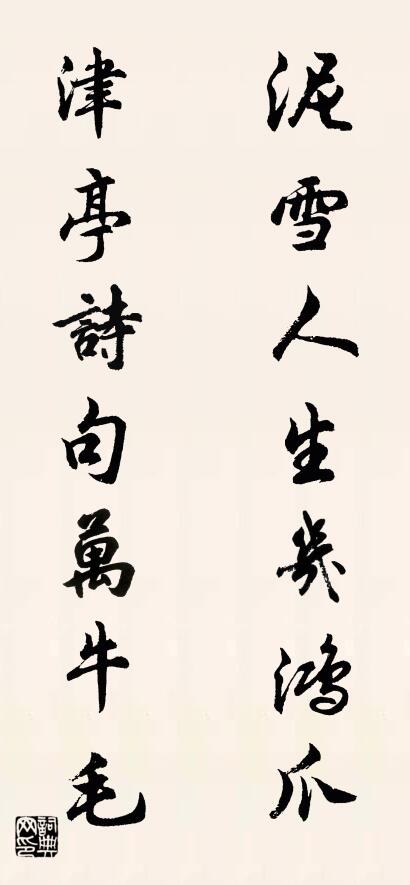 泥雪人生幾鴻爪
津亭詩句萬牛毛
詞典网印